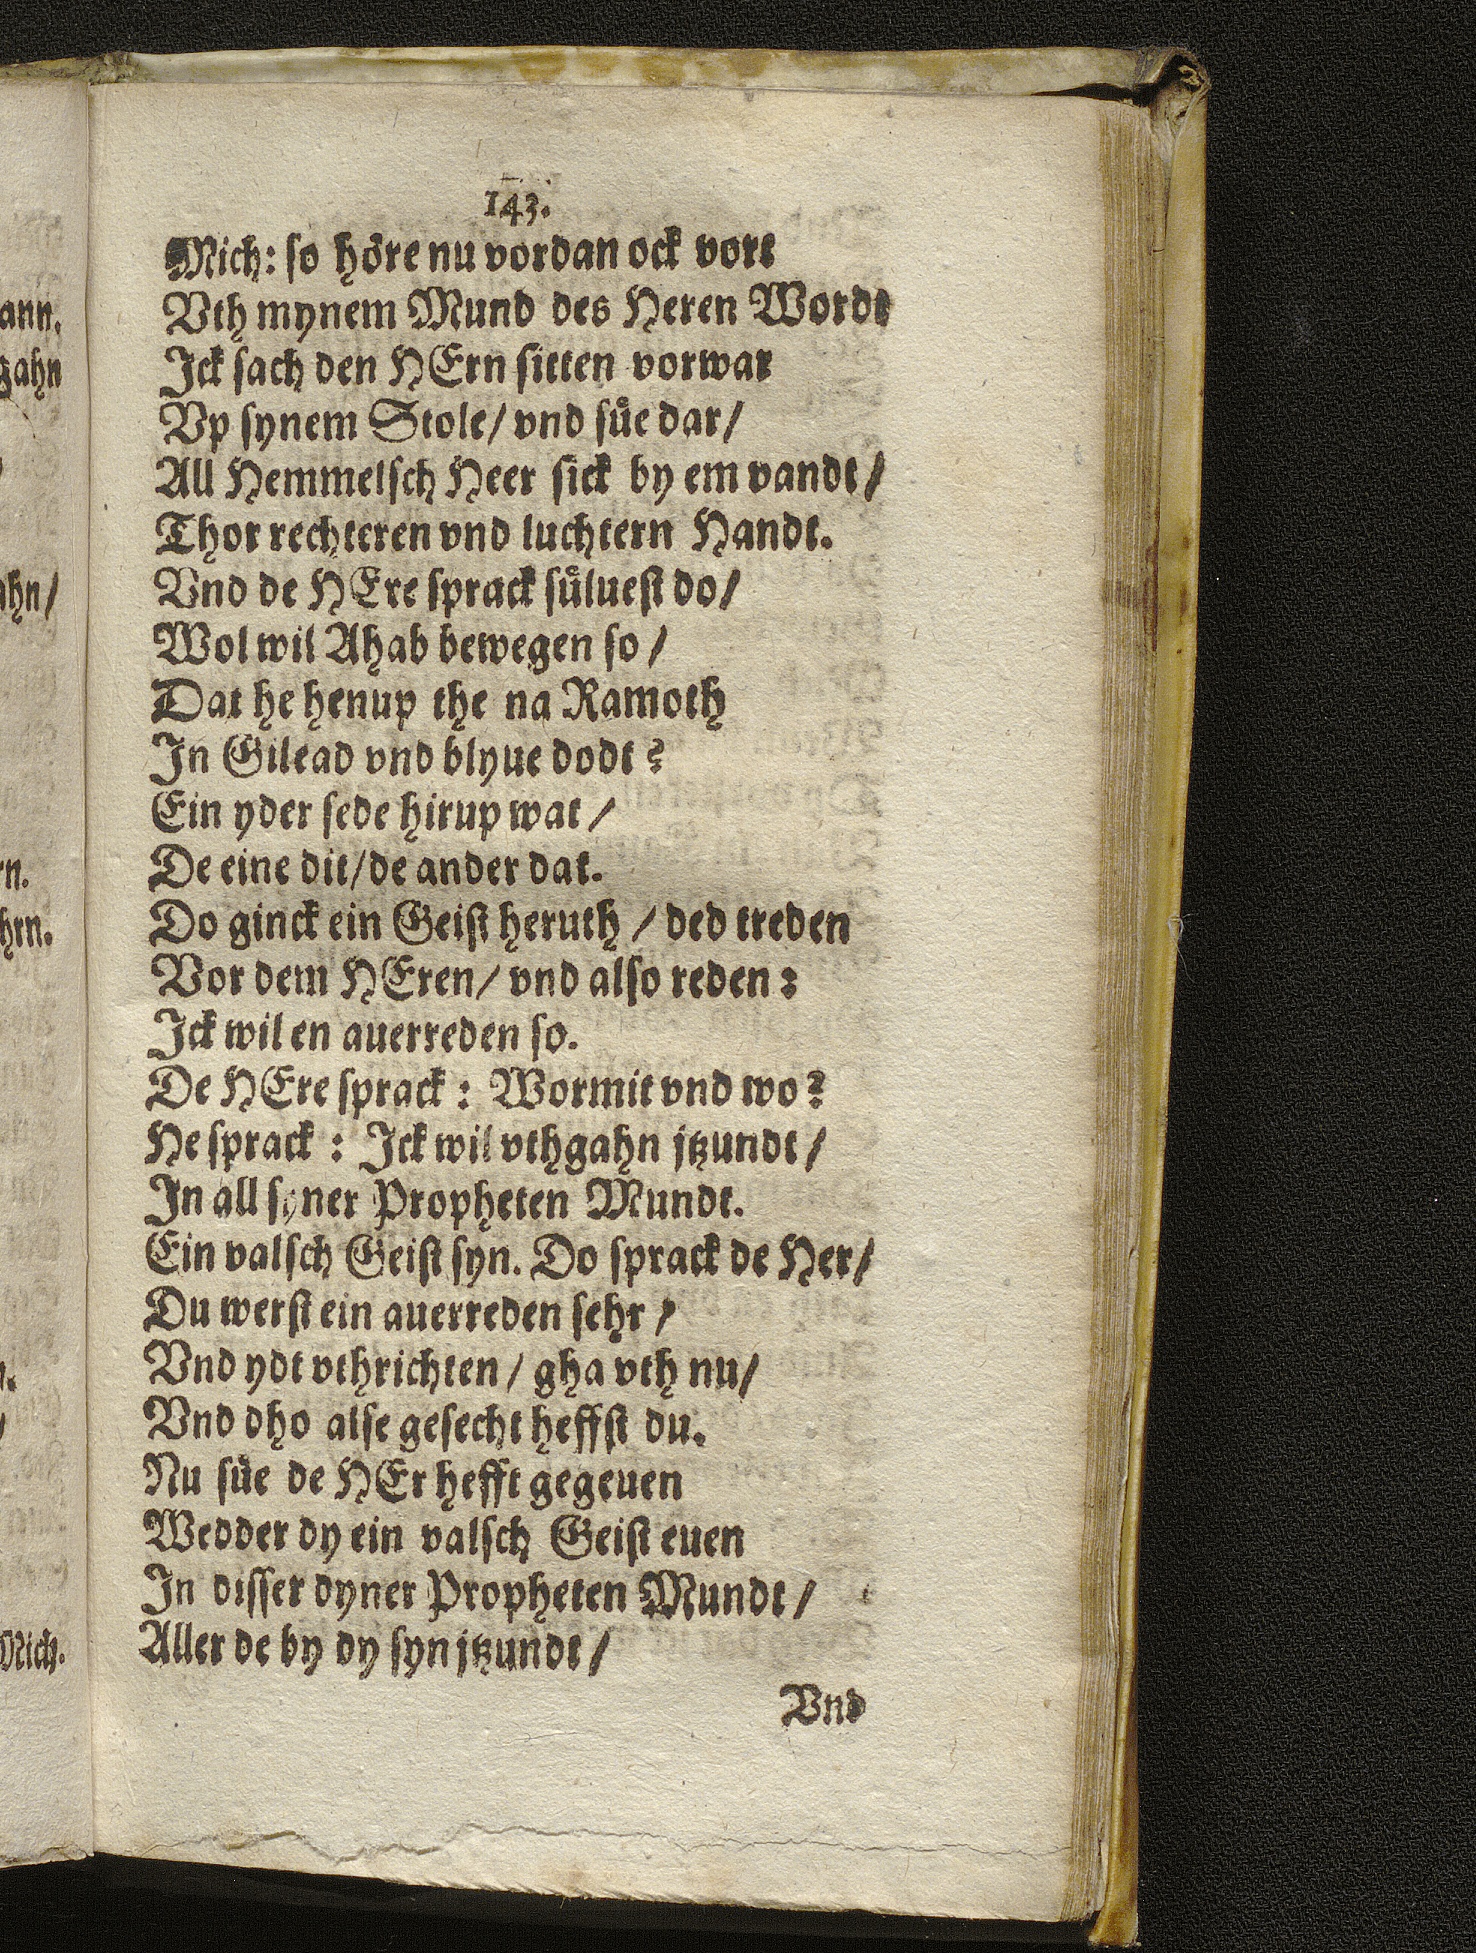 143.
Mich: so höre nu vordan ock vort
Vth mynem Mund des Heren Wordt
Jck sach den HErn sitten vorwar
Vp synem Stole/ vnd süe dar/
All Hemmelsch Heer sick by em vandt/
Thor rechteren vnd luchtern Handt.
Vnd de HEre sprack süluest do/
Wol wil Ahab bewegen so/
Dat he henup the na Ramoth
Jn Gilead vnd blyue dodt?
Ein yder sede hirup wat/
De eine dit/de ander dat.
Do ginck ein Geist heruth/ ded treden
Vor dem HEren/ vnd also reden:
Jck wil en auerreden so.
De HEre sprack: Wormit vnd wo?
He sprack: Jck wil vthgahn jtzundt/
Jn all syner Propheten Mundt.
Ein valsch Geist syn. Do sprack de Her/
Du werst ein auerreden sehr/
Vnd ydt vthrichten/ gha vth nu/
Vnd dho alse gesecht heffst du.
Nu süe de HEr hefft gegeuen
Wedder dy ein valsch Geist euen
Jn disser dyner Propheten Mundt/
Aller de by dy syn jtzundt/
Vnd
ann.
gahn
ahn/
rn.
hrn.
Mich.